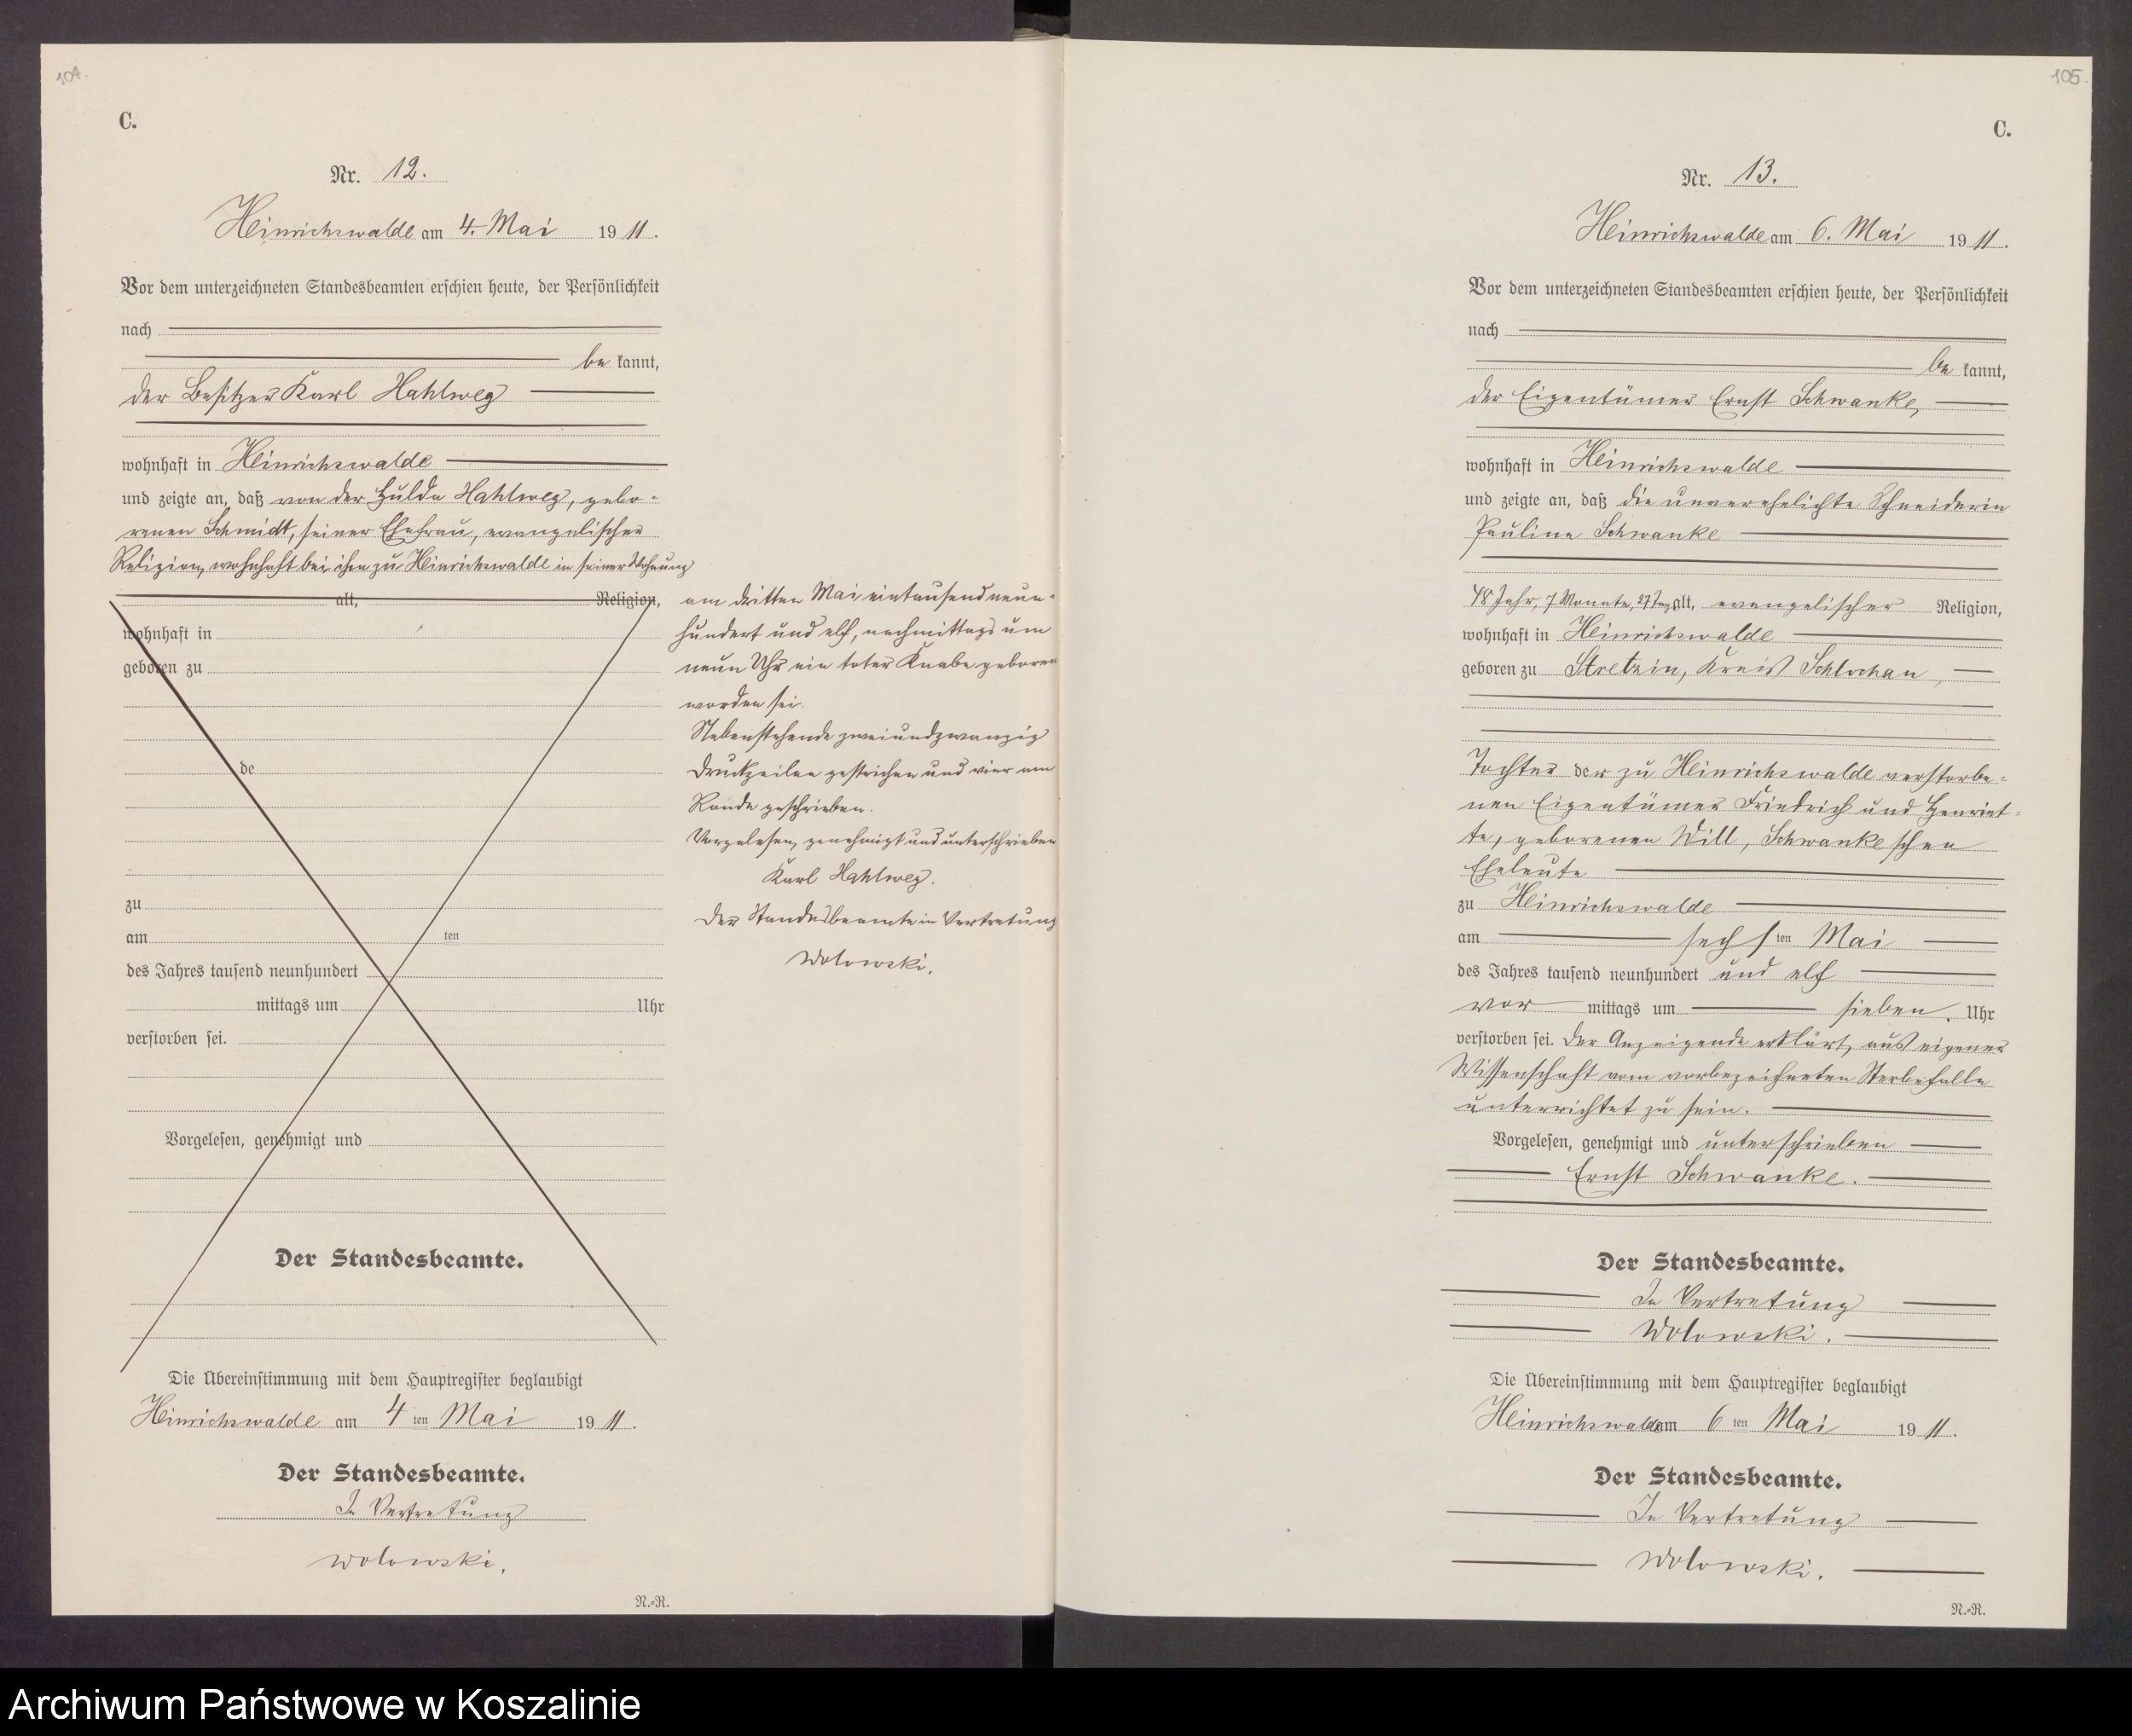 104.
C.
Nr. 12.
Heinrichswalde am 4. Mai 1911.
Vor dem unterzeichneten Standesbeamten erschien heute, der Persönlichkeit
nach
be kannt,
der Besitzer Karl Hahlweg
wohnhaft in Heinrichswalde
und zeigte an, daß von der Hulda Hahlweg, gebo-
renen Schmidt, seiner Ehefrau, evangelischer
Religion, wohnhaft bei ihm zu Heinrichswalde in seiner Wohnung
alt, Religion,
wohnhaft in
geboren zu
de
zu
am ten
des Jahres tausend neunhundert
mittags um Uhr
verstorben sei.
Vorgelesen, genehmigt und
Der Standesbeamte.
Die Übereinstimmung mit dem Hauptregister beglaubigt
Heinrichswalde am 4ten Mai 1911.
Der Standesbeamte.
In Vertretung
Wolowski.
N.-R.
am dritten Mai eintausend neun-
hundert und elf, nachmittags um
neun Uhr ein toter Knabe geboren
worden sei.
Nebenstehende zweiundzwanzig
Druckzeilen gestrichen und vier am
Rande geschrieben.
Vorgelesen, genehmigt und unterschrieben
Karl Hahlweg.
Der Standesbeamte in Vertretung
Wolowski.
105.
C.
Nr. 13.
Heinrichswalde am 6. Mai 1911.
Vor dem unterzeichneten Standesbeamten erschien heute, der Persönlichkeit
nach
be kannt,
der Eigentümer Ernst Schwanke,
wohnhaft in Heinrichswalde
und zeigte an, daß die unverehelichte Schneiderin
Pauline Schwanke
48 Jahr, 7 Monate, 27 Tag alt, evangelischer Religion,
wohnhaft in Heinrichswalde
geboren zu Stretzin, Kreis Schlochau,
Tochter der zu Heinrichswalde verstorbe-
nen Eigentümer Friedrich und Henriet-
te, geborenen Will, Schwanke schen
Eheleute
zu Heinrichswalde
am sechsten Mai
des Jahres tausend neunhundert und elf
vor mittags um sieben Uhr
verstorben sei. Der Anzeigende erklärt, aus eigener
Wissenschaft vom vorbezeichneten Sterbefalle
unterrichtet zu sein.
Vorgelesen, genehmigt und unterschrieben
Ernst Schwanke.
Der Standesbeamte.
In Vertretung
Wolowski.
Die Übereinstimmung mit dem Hauptregister beglaubigt
Heinrichswalde am 6ten Mai 1911.
Der Standesbeamte.
In Vertretung
Wolowski.
N.-R.
Archiwum Państwowe w Koszalinie